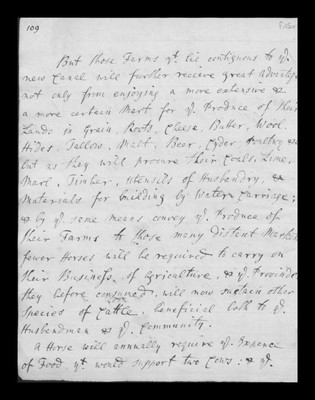 109
But those Farms yt. lie contiguous to ye.
new Canal will further receive great advantage
not only from enjoying a more extensive &
a more certain Mart for ye. Produce of their
Lands in Grain, Roots, Cheese, Butter, Wool.
Hides, Tallow, Malt, Beer, Cyder Poultry &c
but as they will procure their Coals, Lime,
Marl, Timber, utensils of Husbandry, &
Materials for building by Water Carriage;
& by ye. same means convey ye. Produce of
their Farms to those many distant Markets
fewer Horses will be required to carry on
their Business of Agriculture, & ye. Provinder
they before consumed, will now sustain other
Species of Cattle, beneficial both to ye.
Husbandman & ye. Community.
A Horse will annually require ye. Expence
of Food yt. would support two Cows: & ye.